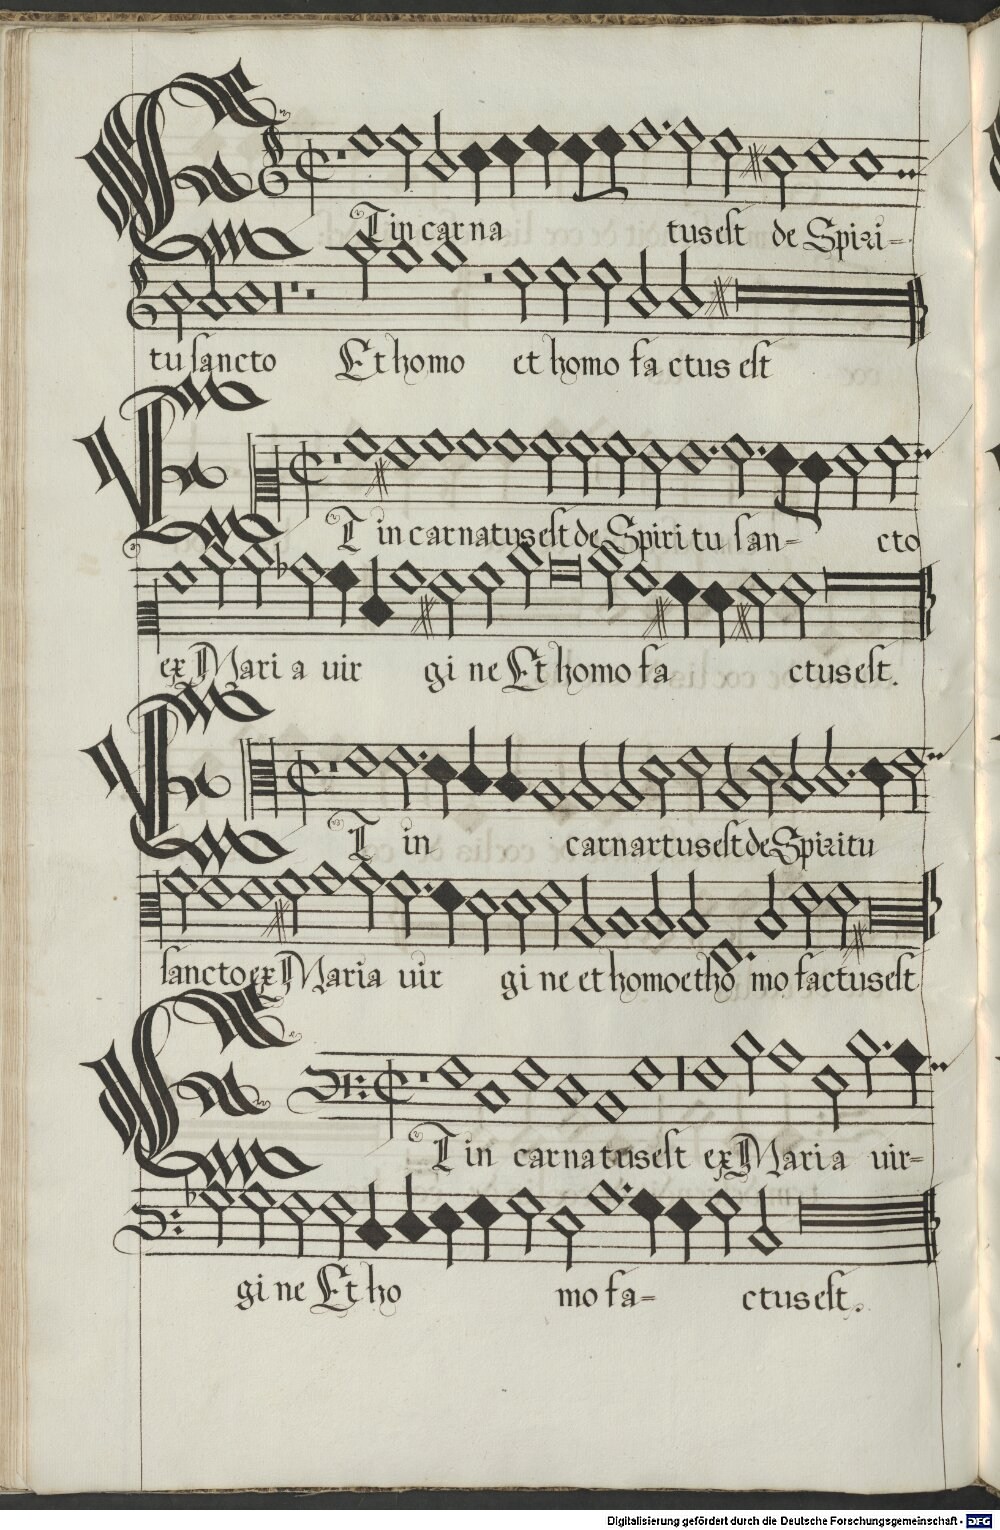 Et in car na tus est de Spiri=
tu sancto Et homo et homo fa ctus est
Et in carnatus est de Spiri tu san= cto
ex Mari a uir gi ne Et homo fa ctus est.
Et in carnartus est de Spiritu
sancto ex Maria uir gi ne et homo et ho mo factus est
Et in carnatus est ex Maria uir=
gi ne Et ho mo fa= ctus est.
Digitalisierung gefördert durch die Deutsche Forschungsgemeinschaft - DFG